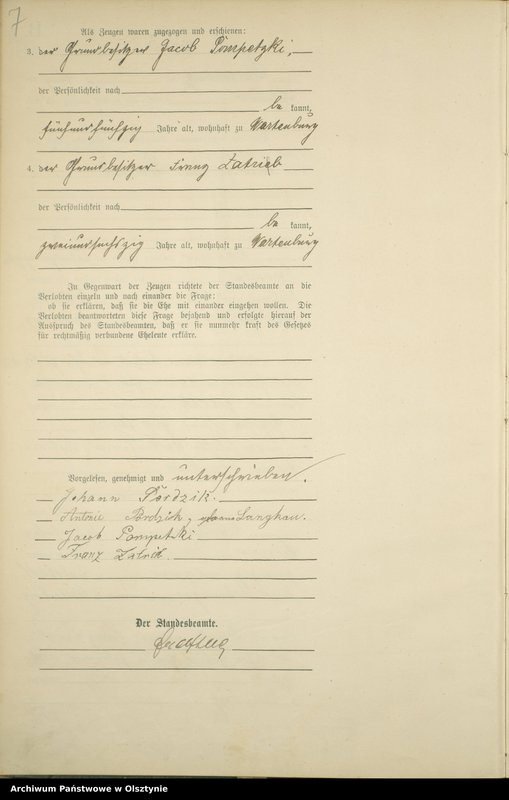 7
Als Zeugen waren zugezogen und erschienen:
3. der Grundbesitzer Jacob Pompetzki,
der Persönlichkeit nach
be kannt,
fünfundfünfzig Jahre alt, wohnhaft zu Wartenburg
4. der Grundbesitzer Franz Zatrieb
der Persönlichkeit nach
be kannt,
zweiundsechszig Jahre alt, wohnhaft zu Wartenburg
In Gegenwart der Zeugen richtete der Standesbeamte an die
Verlobten einzeln und nach einander die Frage:
ob sie erklären, daß sie die Ehe mit einander eingehen wollen. Die
Verlobten beantworteten diese Frage bejahend und erfolgte hierauf der
Ausspruch des Standesbeamten, daß er sie nunmehr kraft des Gesetzes
für rechtmäßig verbundene Eheleute erkläre.
Vorgelesen, genehmigt und unterschrieben.
Johann Pordzik.
Antonie Pordzik, geborne Langkau.
Jacob Pompetzki
Franz
Der Standesbeamte.
Archiwum Państwowe w Olsztynie